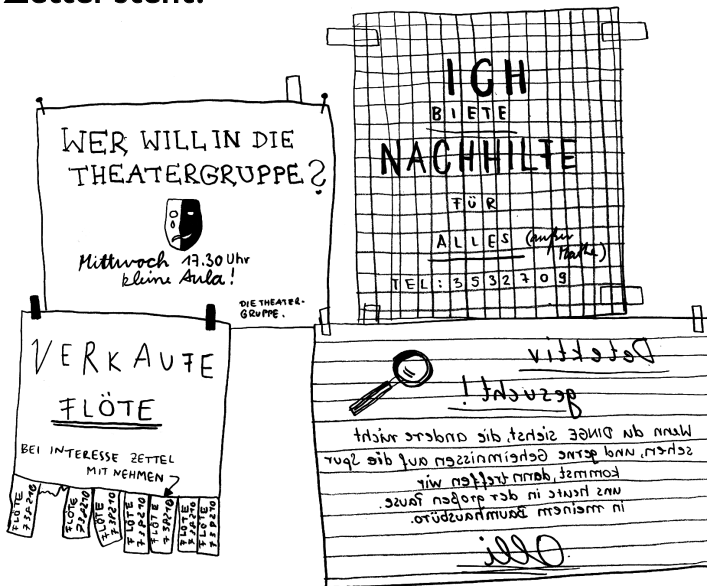 Zettel steht.
WER WILL IN DIE
THEATERGRUPPE?
Mittwoch 17.30 Uhr
kleine Aula!
DIE THEATER-
GRUPPE.
ICH
BIETE
NACHHILFE
FÜR
ALLES (außer
Mathe)
TEL: 3532709
VERKAUFE
FLÖTE
BEI INTERESSE ZETTEL
MITNEHMEN
FLÖTE
FLÖTE
FLÖTE
FLÖTE
FLÖTE
FLÖTE
FLÖTE
Detektiv
gesucht!
Wenn du DINGE siehst, die andere nicht
sehen, und gerne Geheimnissen auf die Spur
kommst, dann treffen wir
uns heute in der großen Pause.
in meinem Baumhausbüro.
Olli